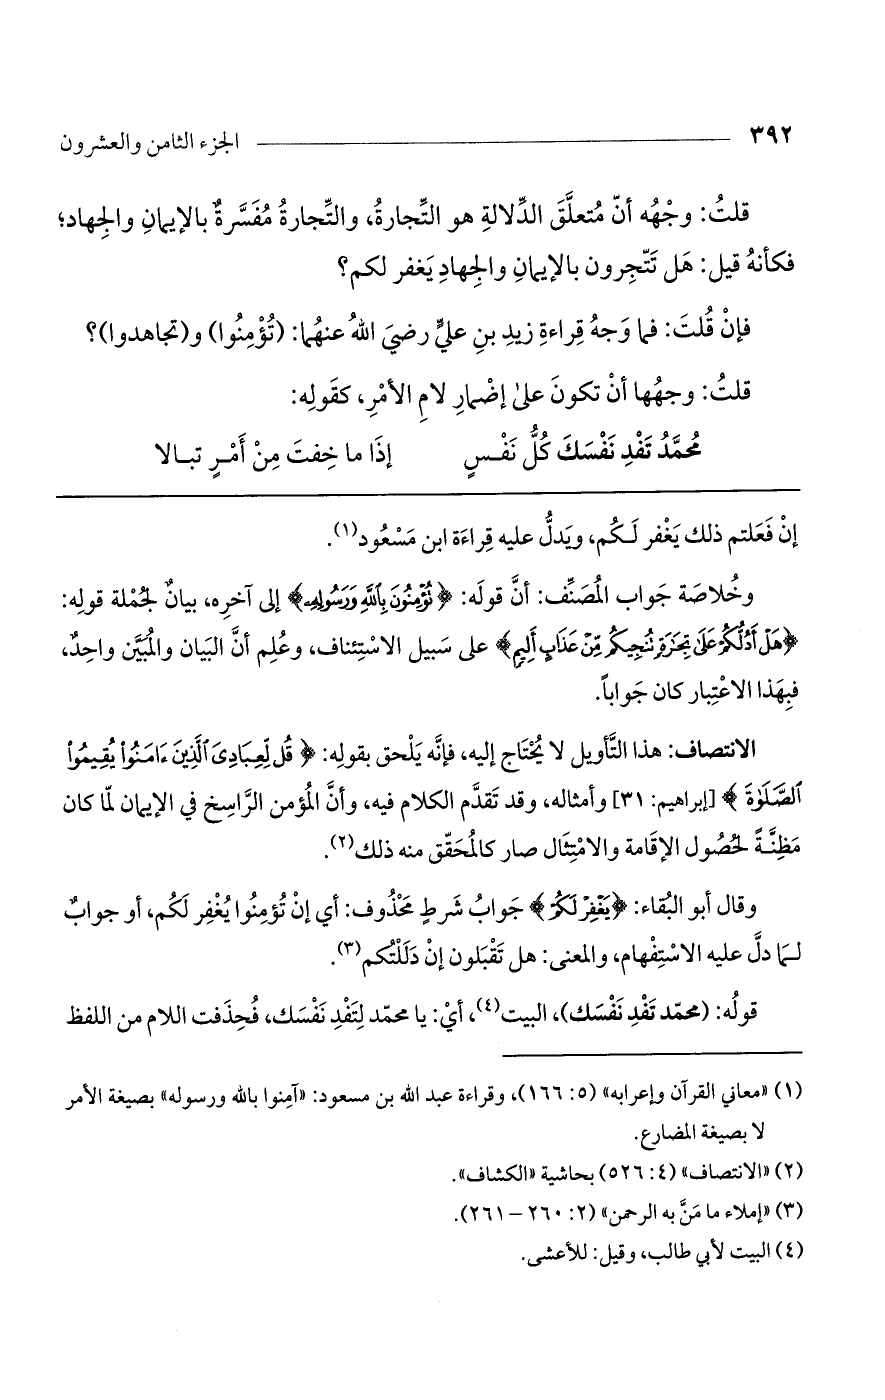 ٣٩٢ الجزء الثامن والعشرون
قلتُ: وجْهُه أنّ مُتعلَّقَ الدِّلالةِ هو التِّجارةُ، والتِّجارةُ مُفَسَّرةٌ بالإيمانِ والجِهاد؛
فكأنهُ قيل: هَل تَتّجِرون بالإيمانِ والجِهادِ يَغفر لكم؟
فإنْ قُلتَ: فما وَجهُ قِراءةِ زيدِ بنِ عليٍّ رضيَ اللهُ عنهُما: (تُؤْمِنُوا) و(تجاهدوا)؟
قلتُ: وجهُها أنْ تكونَ علىٰ إضْمارِ لامِ الأمْرِ، كقَولِه:
مُحمَّدُ تَفْدِ نَفْسَكَ كُلُّ نَفْـسٍ إذَا ما خِفتَ مِنْ أَمْـرٍ تبـالا
إنْ فَعَلتم ذلك يَغْفر لَـكُم، ويَدلُّ عليه قِراءَة ابن مَسْعُود(١).
وخُلاصَة جَواب المُصَنِّف: أنَّ قولَه: ﴿تُؤْمِنُونَ بِاللَّهِ وَرَسُولِهِ﴾ إلى آخرِه، بيانٌ لجُمْلة قولِه:
﴿هَلْ أَدُلُّكُمْ عَلَىٰ تِجَٰرَةٍ تُنجِيكُم مِّنْ عَذَابٍ أَلِيمٍ﴾ على سَبيل الاسْتِئناف، وعُلِم أنَّ البَيان والمُبَيَّن واحِدٌ،
فبِهَذا الاعْتِبار كان جَواباً.
الانتصاف: هذا التَّأويل لا يُحْتَاج إليه، فإنَّه يَلْحق بقولِه: ﴿قُل لِّعِبَادِىَ ٱلَّذِينَ ءَامَنُوا۟ يُقِيمُوا۟
ٱلصَّلَوٰةَ﴾ [إبراهيم: ٣١] وأمثاله، وقد تَقدَّم الكلام فيه، وأنَّ المُؤمن الرَّاسِخ في الإيمان لمّا كان
مَظِنَّـةً لحُصُول الإقَامة والامْتِثَال صار كالمُحَقّق منه ذلك(٢).
وقال أبو البُقاء: ﴿يَغْفِرْ لَكُمْ﴾ جَوابُ شَرطٍ مَحْذُوف: أي إنْ تُؤمِنُوا يُغْفِر لَكُم، أو جوابٌ
لـمَا دلَّ عليه الاسْتِفْهام، والمعنى: هل تَقْبَلون إنْ دَلَلْتُكم(٣).
قولُه: (محمّد تَفْدِ نَفْسَك)، البيت(٤)، أيْ: يا محمّد لِتَفْدِ نَفْسَك، فحُذِفت اللام من اللفظ
(١) «معاني القرآن وإعرابه» (٥: ١٦٦)، وقراءة عبد الله بن مسعود: «آمِنوا بالله ورسوله» بصيغة الأمر
لا بصيغة المضارع.
(٢) «الانتصاف» (٤: ٥٢٦) بحاشية «الكشاف».
(٣) «إملاء ما مَنَّ به الرحمن» (٢: ٢٦٠ – ٢٦١).
(٤) البيت لأبي طالب، وقيل: للأعشى.